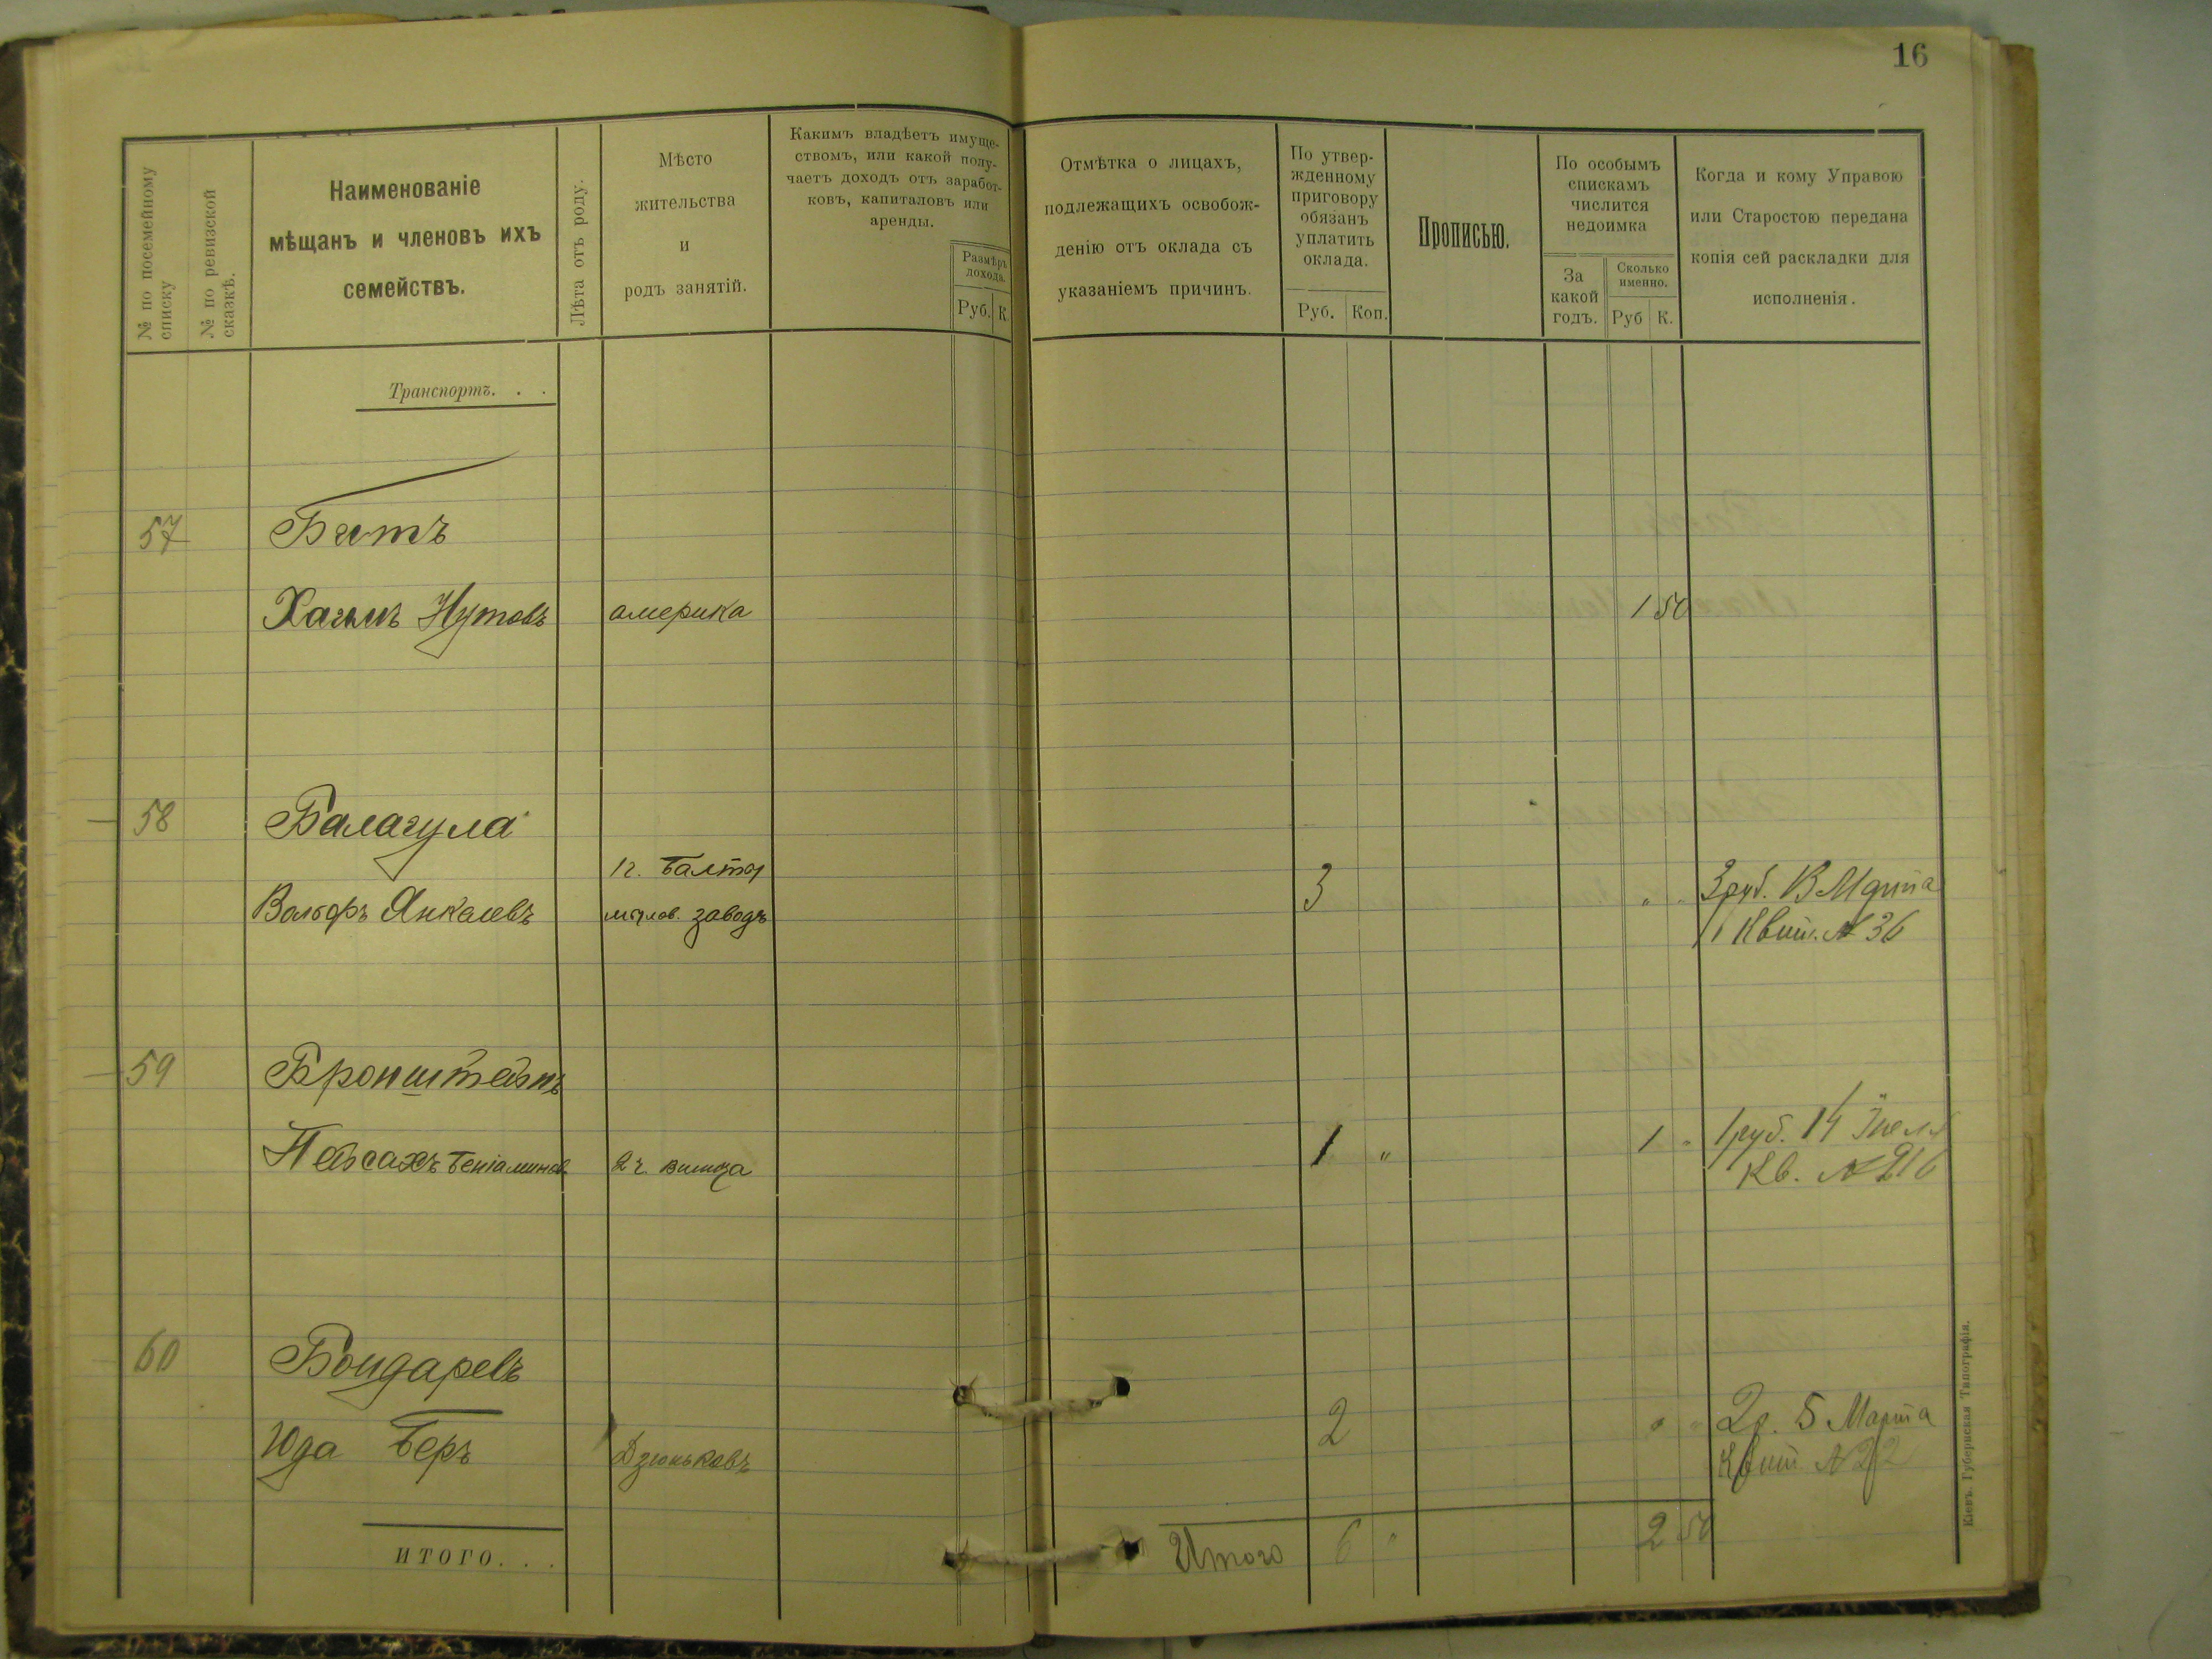 16
№ по посемейному
списку
№ по ревизской
сказкѣ.
Наименованіе
мѣщанъ и членовъ ихъ
семействъ.
Лѣта отъ роду.
Мѣсто
жительства
и
родъ занятій.
Какимъ владѣетъ имуще-
ствомъ, или какой полу-
чаетъ доходъ отъ заработ-
ковъ, капиталовъ или
аренды.
Размѣръ
дохода.
Руб. К.
Отмѣтка о лицахъ,
подлежащихъ освобож-
денію отъ оклада съ
указаніемъ причинъ.
По утвер-
жденному
приговору
обязанъ
уплатить
оклада.
Руб. Коп.
Прописью.
По особымъ
спискамъ
числится
недоимка
За
какой
годъ.
Сколько
именно.
Руб К.
Когда и кому Управою
или Старостою передана
копія сей раскладки для
исполненія.
Транспортъ. . .
57
Хаимъ Нутовъ америка 1 50
58 Балагула
Вольфъ Янкелевъ заводъ 3 " 3 руб. Марта
Квит. № 36
59 Бронштейнъ
Пейсахъ Беніаминов 1 " 1 " 1 руб. 14
Кв. № 216
60 Бондаревъ
Юда Беръ Дзюньковъ 2 " " 2 р. 5 Марта
Квит № 22
ИТОГО. . .
Итого 6 " 2 50
Кіевъ. Губернская Типографія.